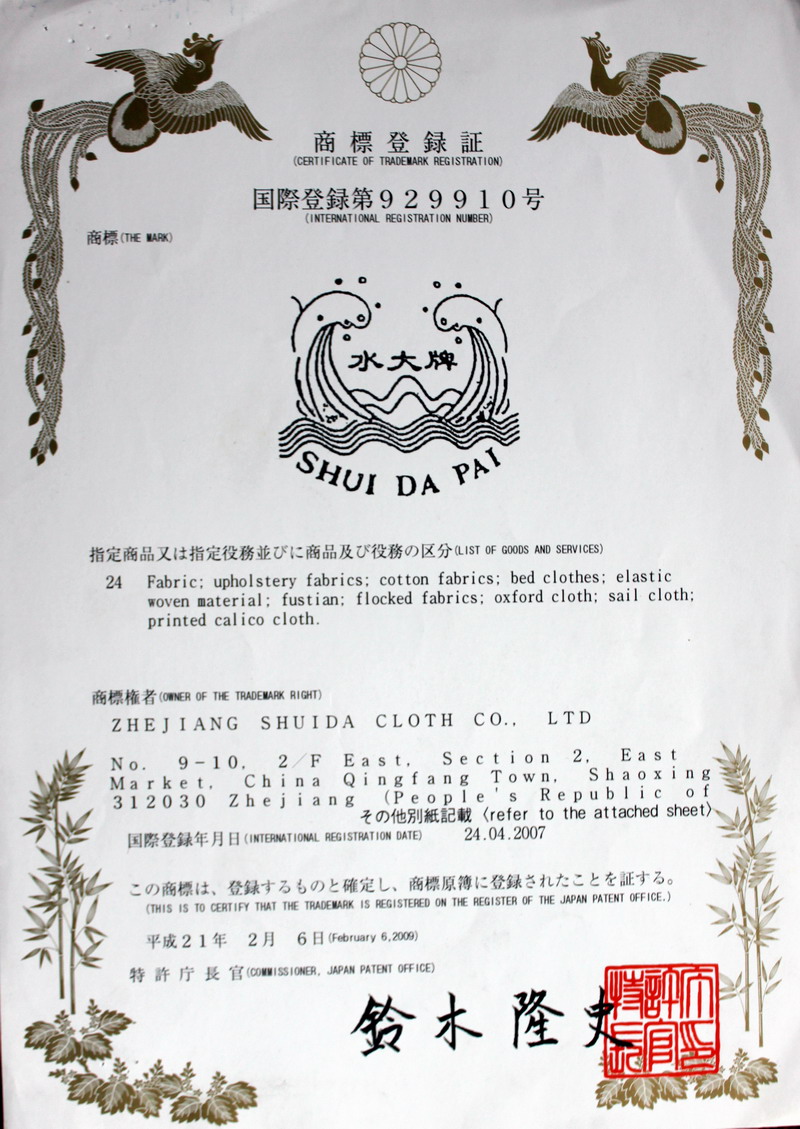 商標登録証
(CERTIFICATE OF TRADEMARK REGISTRATION)
国際登録第929910号
(INTERNATIONAL REGISTRATION NUMBER)
商標(THE MARK)
水大牌
SHUI DA PAI
指定商品又は指定役務並びに商品及び役務の区分(LIST OF GOODS AND SERVICES)
24 Fabric; upholstery fabrics; cotton fabrics; bed clothes; elastic
woven material; fustian; flocked fabrics; oxford cloth; sail cloth;
printed calico cloth.
商標権者(OWNER OF THE TRADEMARK RIGHT)
ZHEJIANG SHUIDA CLOTH CO., LTD
No. 9-10, 2/F East, Section 2, East
Market, China Qingfang Town, Shaoxing
312030 Zhejiang (People's Republic of
その他別紙記載〈refer to the attached sheet〉
国際登録年月日(INTERNATIONAL REGISTRATION DATE) 24.04.2007
この商標は、登録するものと確定し、商標原簿に登録されたことを証する。
(THIS IS TO CERTIFY THAT THE TRADEMARK IS REGISTERED ON THE REGISTER OF THE JAPAN PATENT OFFICE.)
平成21年 2月 6日(February 6,2009)
特許庁長官(COMMISSIONER, JAPAN PATENT OFFICE)
鈴木隆史
特許庁長官之印